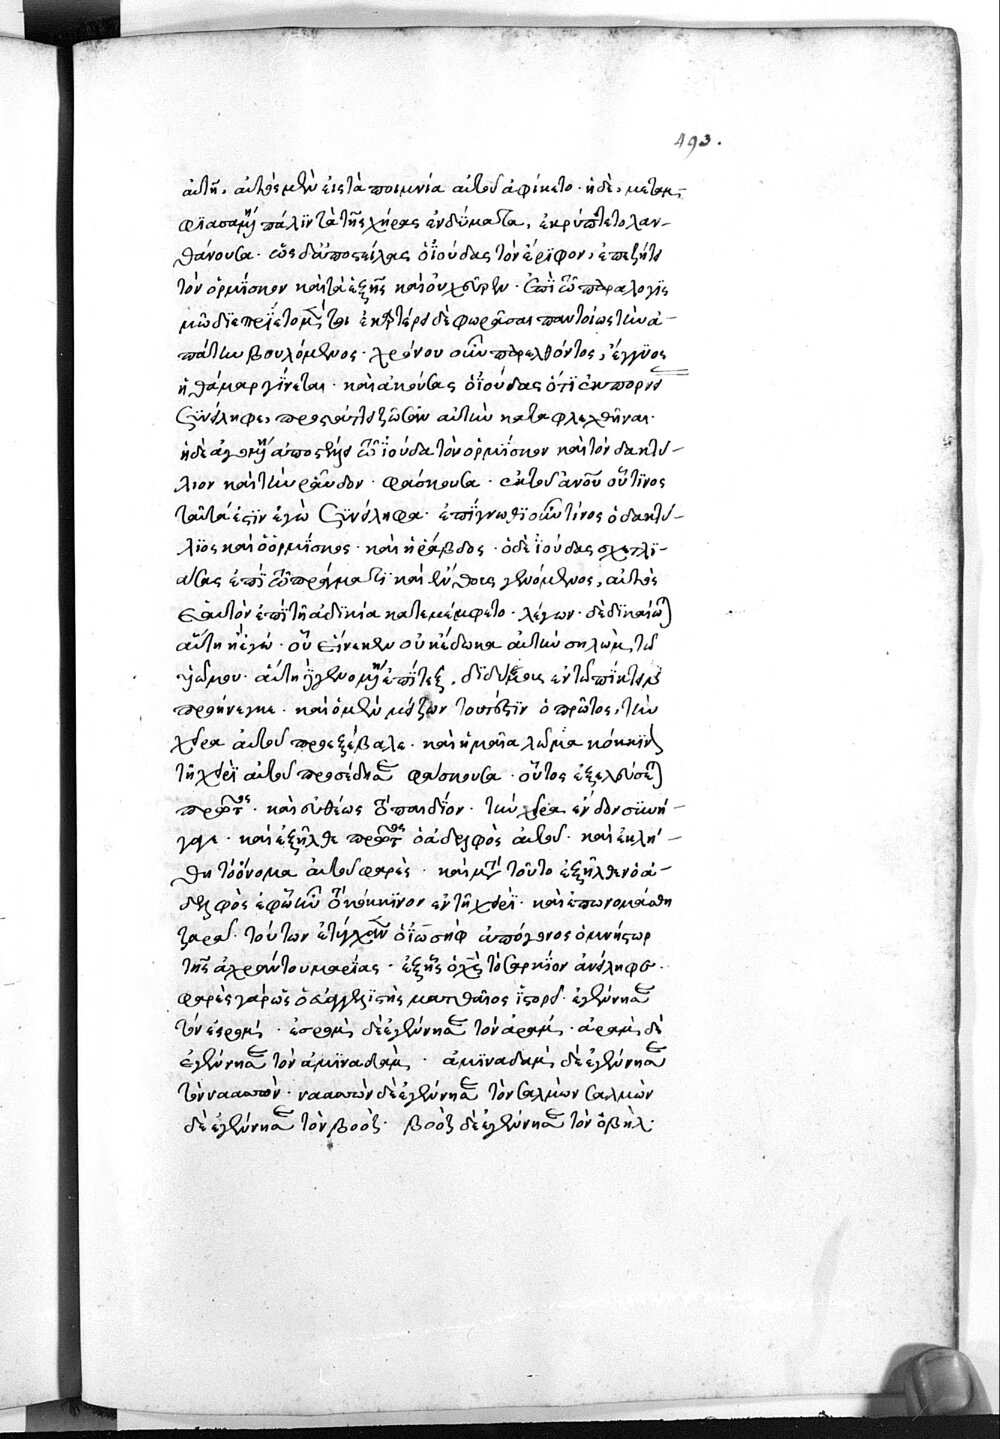 493.
αὐτῆ, αὐτὸς μὲν εἰς τὰ ποιμνία αὐτοῦ ἀφίκετο· ἡ δὲ, μεταμ-
φιασαμένη πάλιν τὰ τῆς χήρας ἐνδύματα, ἐκρύπτετο λαν-
θάνουσα· ὡς δ' ἀποστείλας ὁ ἰούδας τὸν ἔριφον, ἐπεζήτει
τὸν ὁρμίσκον καὶ τὰ ἑξῆς καὶ οὐχ εὗρεν· ἐπὶ τῶ παραλογισ
μῶ διεπρίετο μὲν
πάτην βουλόμενος· χρόνου οὖν παρελθόντος, ἔγγυος
ἡ θάμαρ γίνεται· καὶ ἀκούσας ὁ ἰούδας ὅτι ἐκ πορνεί
συνείληφε, προσέταξε ζῶσαν αὐτὴν καταφλεχθῆναι·
ἡ δὲ ἀγομένη ἀποστέλλει τῶ ἰούδα τὸν ὁρμίσκον καὶ τὸν δακτύ-
λιον καὶ τὴν ράβδον· φάσκουσα· ἐκ τοῦ ἀνοῦ οὗτινος
ταῦτά ἐστιν ἐγὼ συνείληφα· ἐπίγνωθι οὖν τίνος ὁ δακτύ-
λιος καὶ ὁ ὁρμίσκος· καὶ ἡ ράβδος· ὁ δὲ ἰούδας σχετλι-
άσας ἐπὶ τῶ πράγματι καὶ ἔνθους γενόμενος, αὐτὸς
ἑαυτὸν ἐπὶ τῆ ἀδικία κατεμέμφετο· λέγων· δεδικαίωται
αὕτη ἢ ἐγώ· οὗ εἵνεκεν οὐκ ἔδωκα αὐτὴν σηλὼμ τῶ
υἱῶ μου· αὕτη γενομένη ἐπίτεξ, διδύμους ἐν τῶ τίκτειν
προήνεγκε· καὶ ὁ μὲν μείζων τουτέστιν ὁ πρῶτος, τὴν
χεῖρα αὐτοῦ προεξέβαλε· καὶ ἡ μαῖα λῶμα κόκκινον
τῆ χειρὶ αὐτοῦ προσέδησε φάσκουσα· οὗτος ἐξελεύσεται
πρῶτος· καὶ εὐθέως τὸ παιδίον· τὴν χεῖρα ἔνδον συνή-
γαγε· καὶ ἐξῆλθε πρῶτος ὁ ἀδελφὸς αὐτοῦ· καὶ ἐκλή-
θη τὸ ὄνομα αὐτοῦ φαρές· καὶ μετὰ τοῦτο ἐξῆλθεν ὁ ἀ-
δελφὸς ἐφ' ὧ ἦν τὸ κόκκινον ἐν τῆ χειρί· καὶ ἐπωνομάσθη
ζαρά· τούτων ἐτύγχανεν ὁ ἰωσὴφ ἀπόγονος ὁ μνήστωρ
τῆς ἀχράντου μαρίας· ἐξ ἧς ὁ χς τὸ σαρκίον ἀνείληφε·
φαρὲς γὰρ ὡς ὁ εὐαγγελιστὴς ματθαῖος ἱστορεῖ· ἐγέννησε
τὸν ἐσρώμ· ἐσρὼμ δὲ ἐγέννησε τὸν ἀράμ· ἀρὰμ δὲ
ἐγέννησε τὸν ἀμιναδάμ· ἀμιναδὰμ δὲ ἐγέννησε
τὸν ναασσών· ναασσὼν δὲ ἐγέννησε τὸν σαλμών σαλμὼν
δὲ ἐγέννησε τὸν βοόζ· βοὸζ δὲ ἐγέννησε τὸν ὀβήλ·